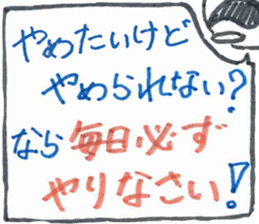 やめたいけど
やめられない?
なら毎日必ず
やりなさい!